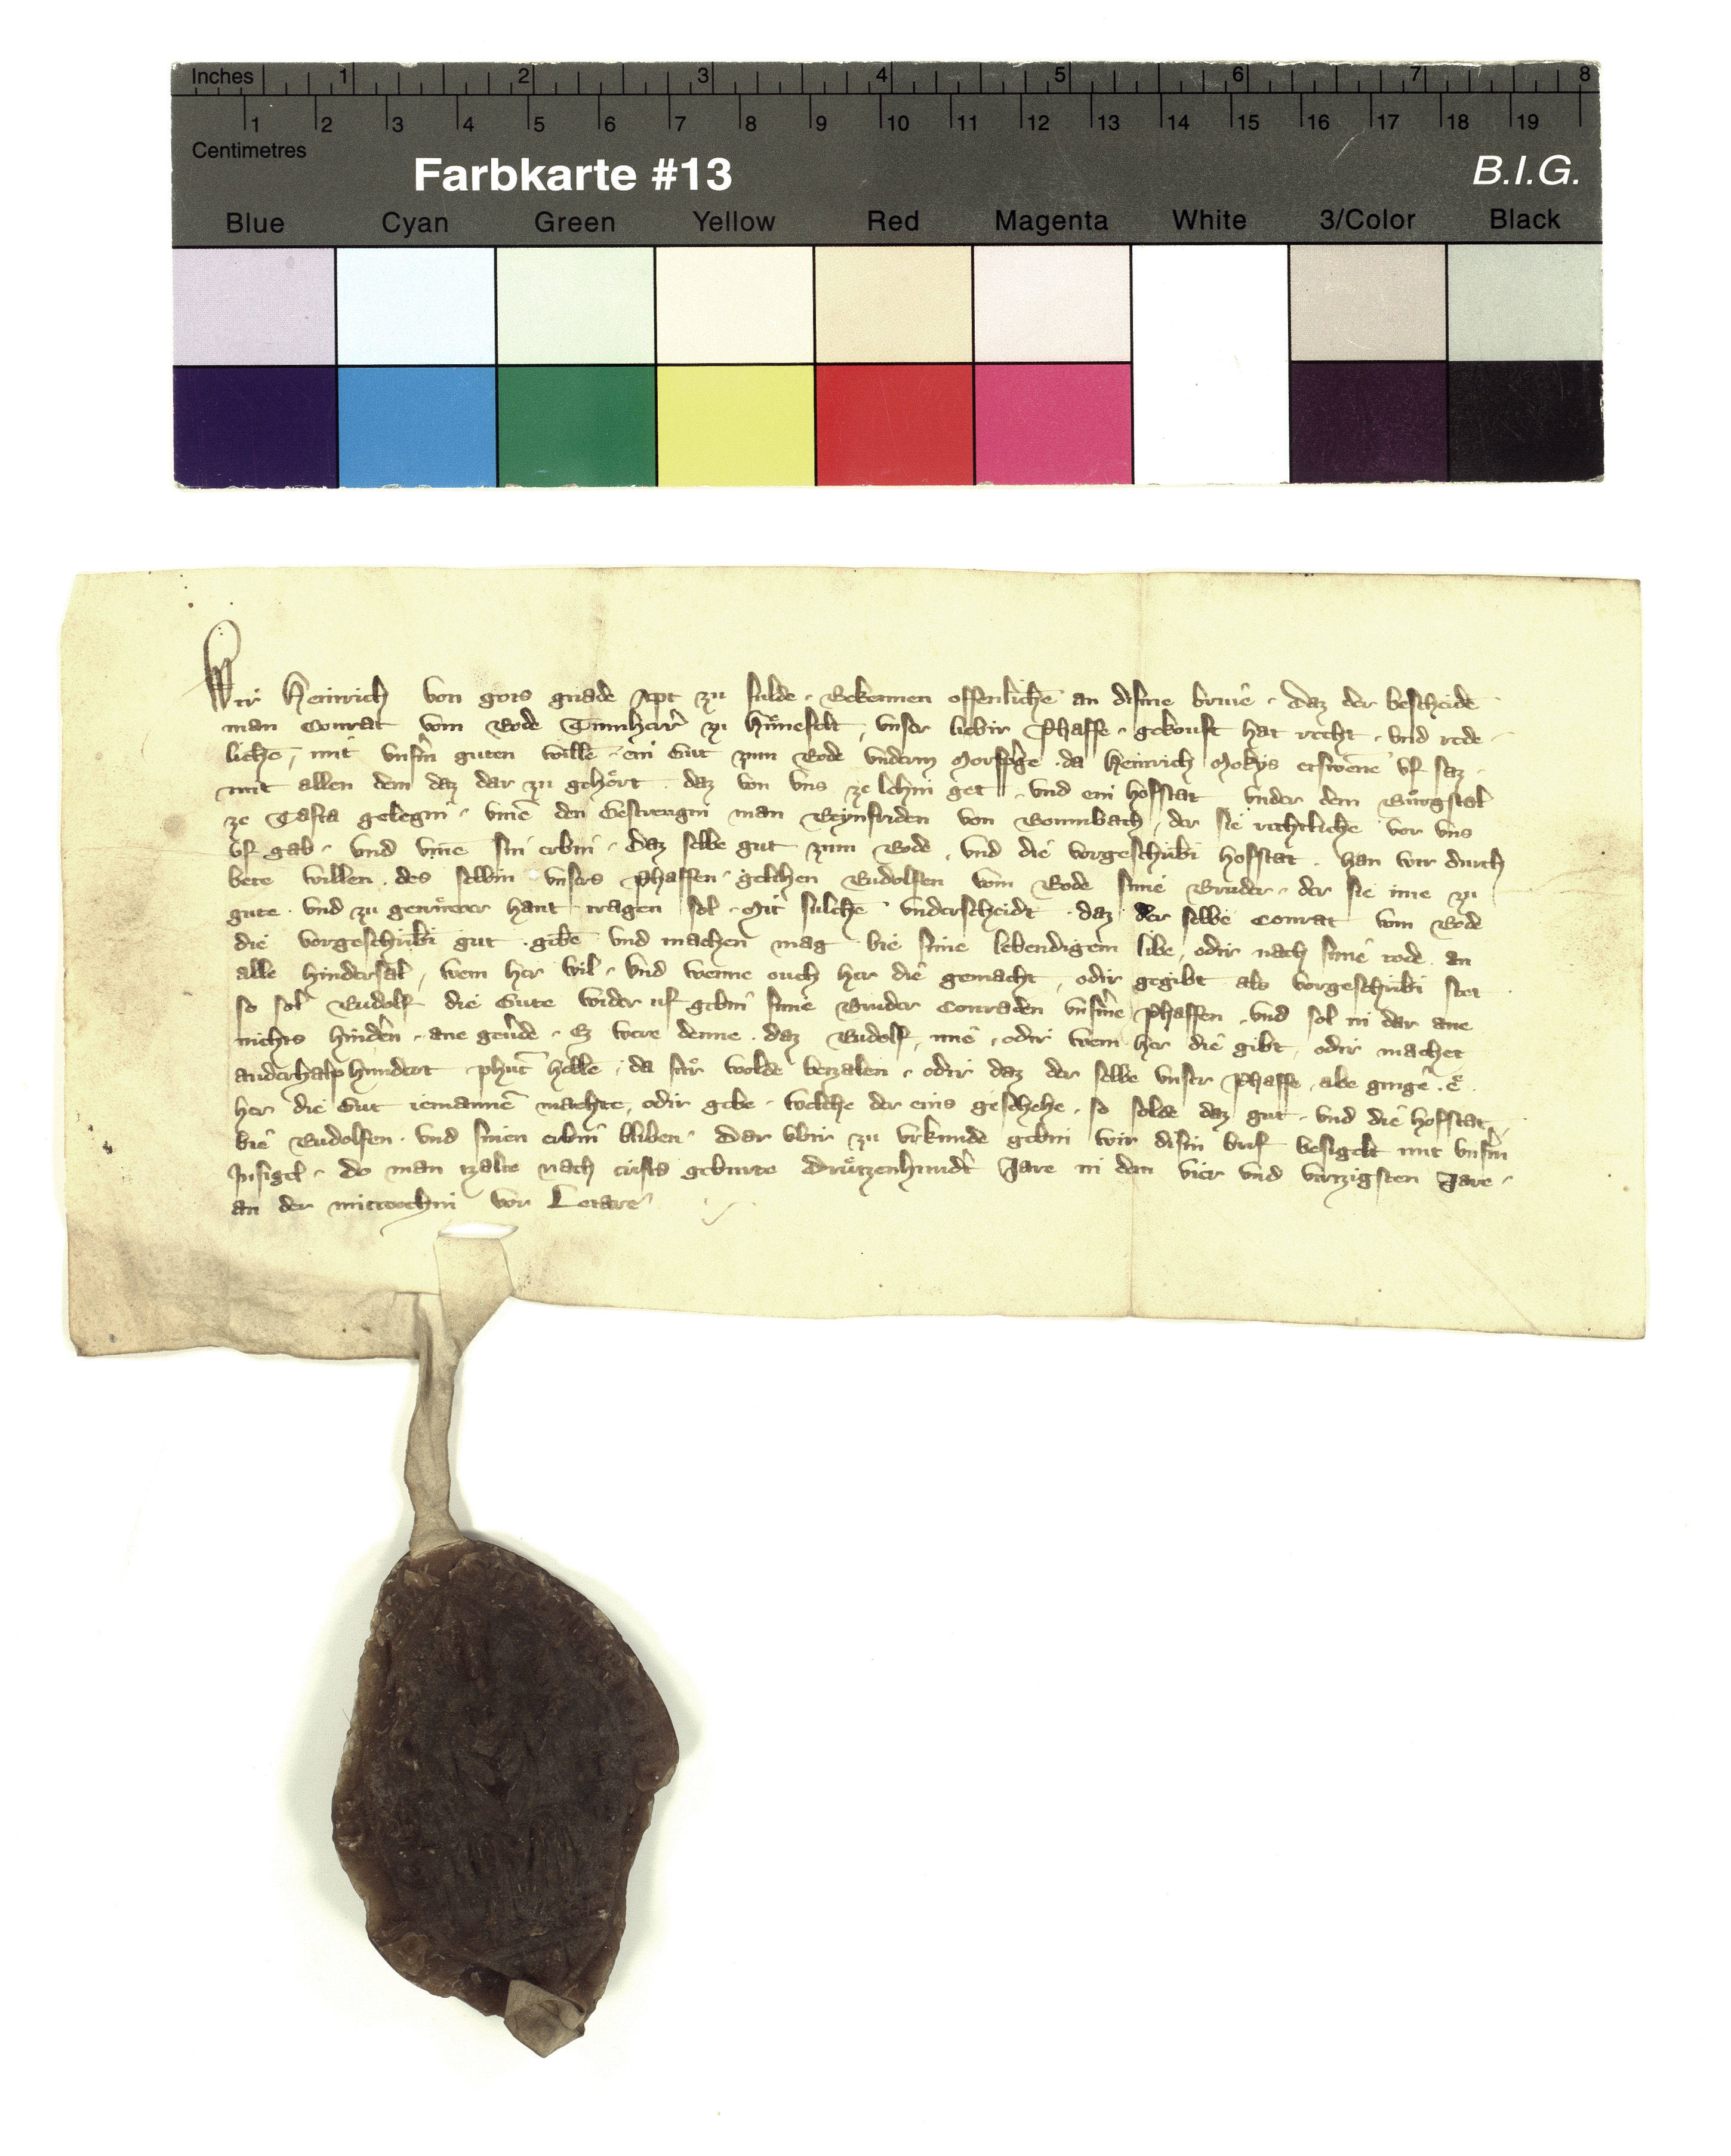 Inches 1 2 3 4 5 6 7 8
1 2 3 4 5 6 7 8 9 10 11 12 13 14 15 16 17 18 19
Centimetres
Farbkarte #13 B.I.G.
Blue Cyan Green Yellow Red Magenta White 3/Color Black
Wir Heinrich von gots gnade Apt zu fulde · Bekennen offenlichē an disme briue · daz der bescheidē
man Conrat vom Rode Tumherr zu Hůnefelt, vnser liebir Phaffe · gekouft hat recht · vnd rede
liche, mit vnsm̄ guten willē · ein Gut zum Rode vnderm · da Heinrich Mokys etswenē vf saz ·
mit allen dem daz dar zu gehört · daz von vns ze lehin get · vnd ein hofstat vnder dem Burgstal
ze Tafta gelegin · vmē den Gestrengin man Reynfriden von Bommbach, der sie rechtlichē vor vns
vf gab · vnd vmē sin erbin · daz selbe gut zum Rode, vnd die vorgeschribī hofstat · han wir durch
bete willen des selbin vnsers Phaffen · gelehen Rudolfen vom Rode sime Bruder · der sie ime zu
gute · vnd zu hant tragen sol · Mit sulchē vnderscheidt · daz der selbe Conrat vom Rode
die vorgeschribī gut · gibē vnd machen mag bie sime lebendigem libe, odir nach simē tode an
alle hindersal, wem her wil · vnd wenne ouch her die gemacht, odir gegibt als vorgeschribī stet
so sol Rudolf die Gute wider uf gebin sime Bruder Conraden vnsme Phaffen, vnd sol in dar ane
nichts hindn̄ · ane geůde · Ez were denne · daz Rudolf, imē, odir wem her die gibt, odir machet
anderhalphundert phūt hellē, da fůr wolde bezalen · odir daz der selbe vnser Phaffe, abe ginge · ē
her die Gut iemannē machte, odir gebe · welche der eins geschehe · so solde daz gut · vnd die hofstat,
bie Rudolfen · vnd sinen erbin bliben · Dar vbir zu vrkunde gebin wir disin brif besigelt mit vnsm̄
Insigel · do man tzalte nach crists geburte Drůtzenhundt Jare in dem vier vnd virtzigsten Jare ·
an der mittwochin vor Letare